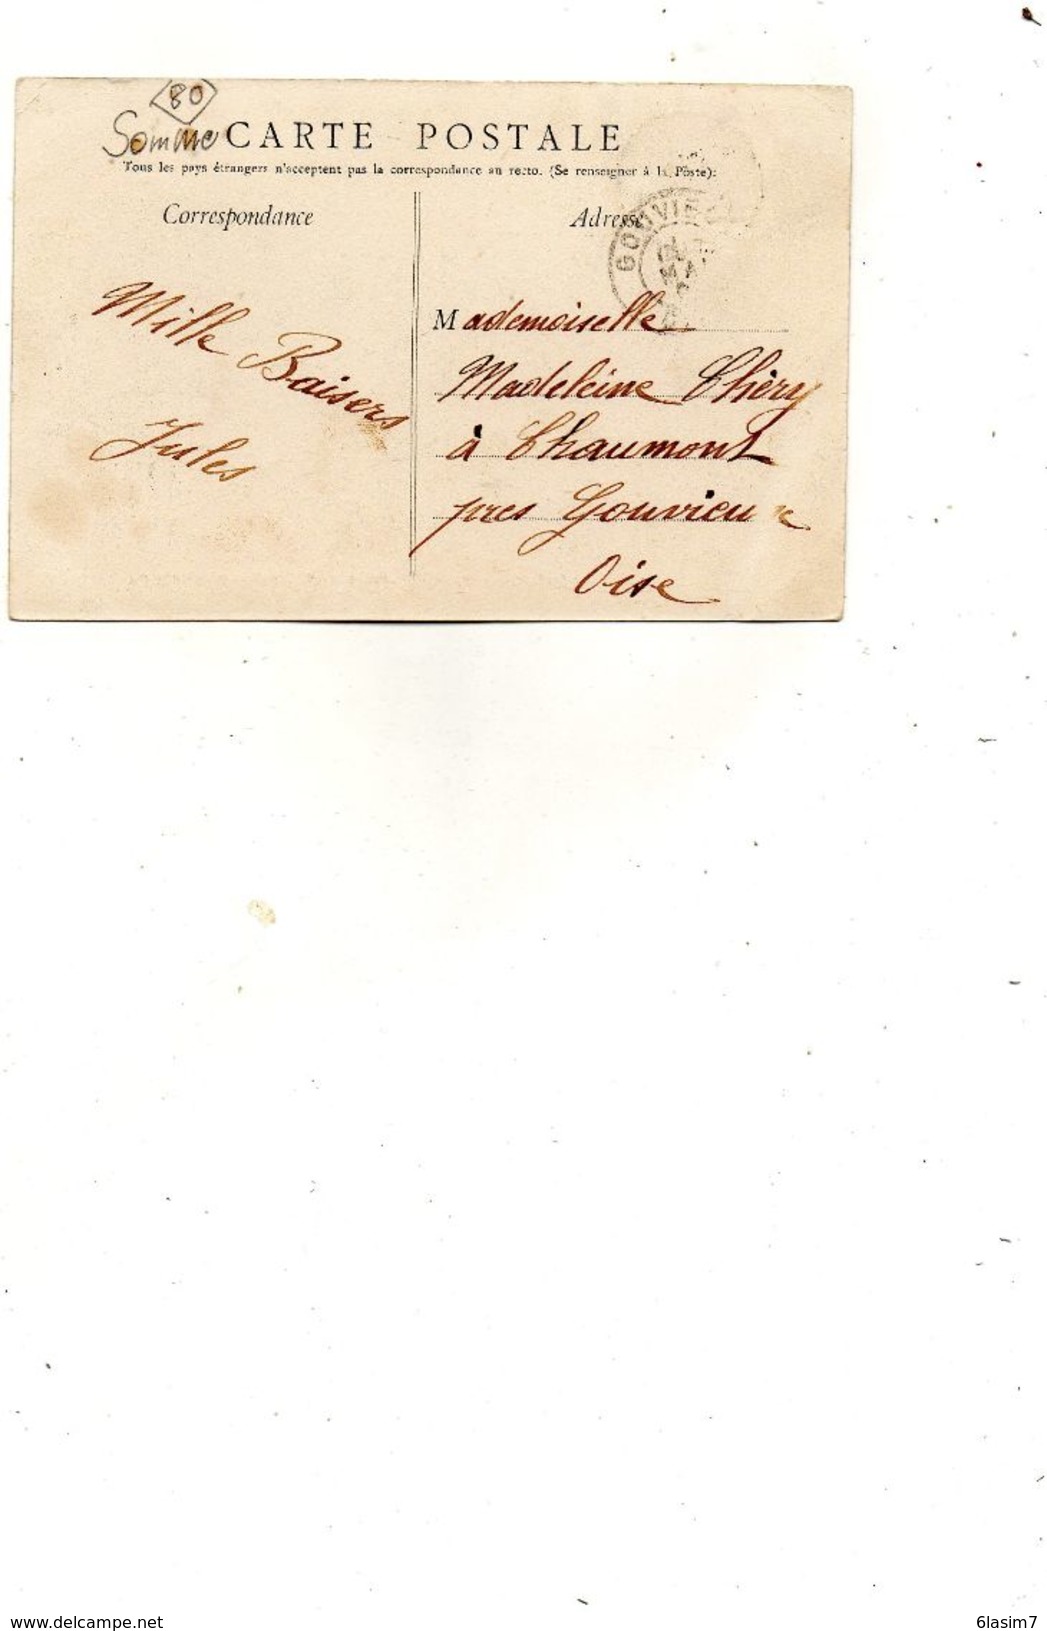 80
Somme
CARTE POSTALE
Tous les pays étrangers n'acceptent pas la correspondance au recto. (Se renseigner à la Poste):
Correspondance
Adresse
GOUVIE
MA
Mille Baisers
Jules
Mademoiselle
Madeleine Théry
à Chaumont
près Gouvieux
Oise
www.delcampe.net
6lasim7